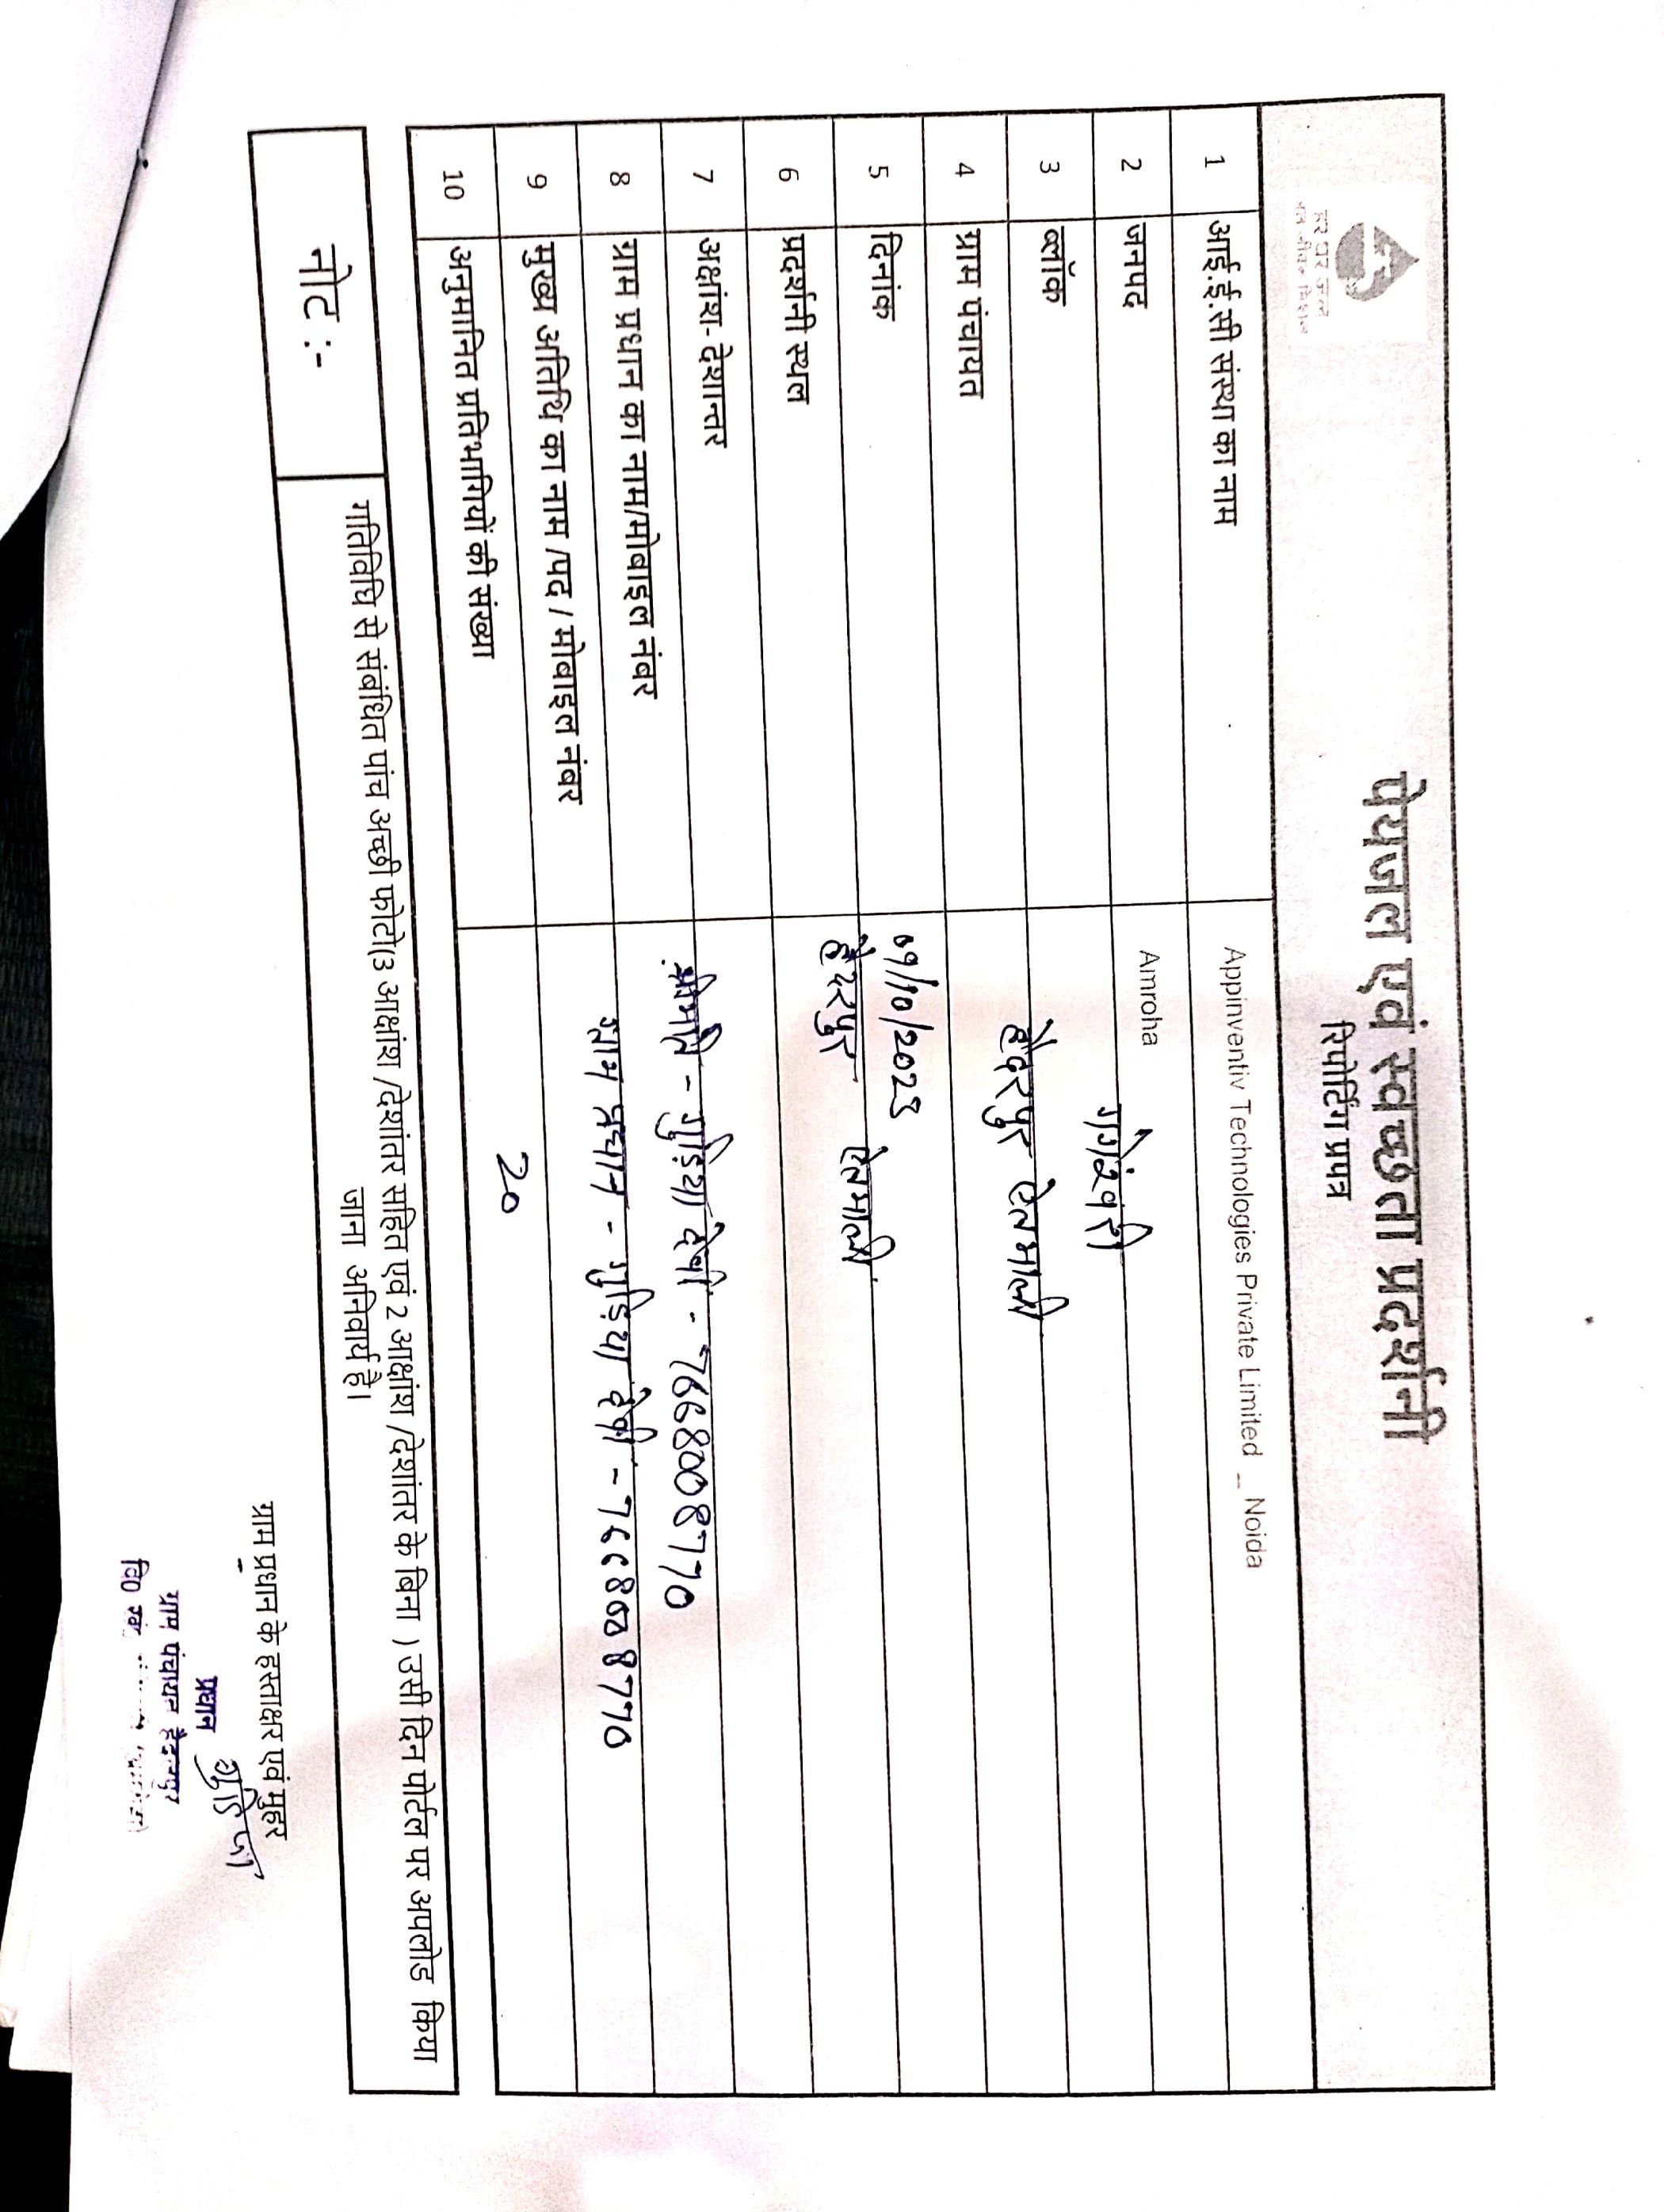 हर घर जल
जल जीवन मिशन
पेयजल एवं स्वच्छता प्रदर्शनी
रिपोर्टिंग प्रपत्र
1 आई.ई.सी संस्था का नाम Appinventiv Technologies Private Limited _ Noida
2 जनपद Amroha
3 ब्लॉक गंगेश्वरी
4 ग्राम पंचायत हैदरपुर
5 दिनांक 09/10/2023
6 प्रदर्शनी स्थल हैदरपुर
7 अक्षांश- देशान्तर
8 ग्राम प्रधान का नाम/मोबाइल नंबर श्रीमति - गुड़िया देवी - 7668008770
9 मुख्य अतिथि का नाम /पद / मोबाइल नंबर ग्राम प्रधान - गुड़िया देवी - 7668008770
10 अनुमानित प्रतिभागियों की संख्या 20
नोट :-
गतिविधि से संबंधित पांच अच्छी फोटो(3 आक्षांश /देशांतर सहित एवं 2 आक्षांश /देशांतर के बिना ) उसी दिन पोर्टल पर अपलोड किया
जाना अनिवार्य है।
ग्राम प्रधान के हस्ताक्षर एवं मुहर
प्रधान
ग्राम पंचायत हैदरपुर
वि0 ख0